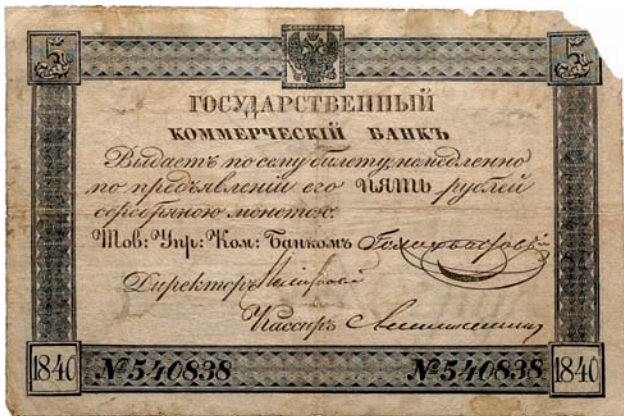 5 5
ГОСУДАРСТВЕННЫЙ
КОММЕРЧЕСКІЙ БАНКЪ
Выдаетъ по сему билету, немедленно
по предъявленіи его ПЯТЬ рублей
серебряною монетою.
Тов: Упр: Ком: Банкомъ
Директоръ
Кассиръ
1840 №540838 №540838 1840